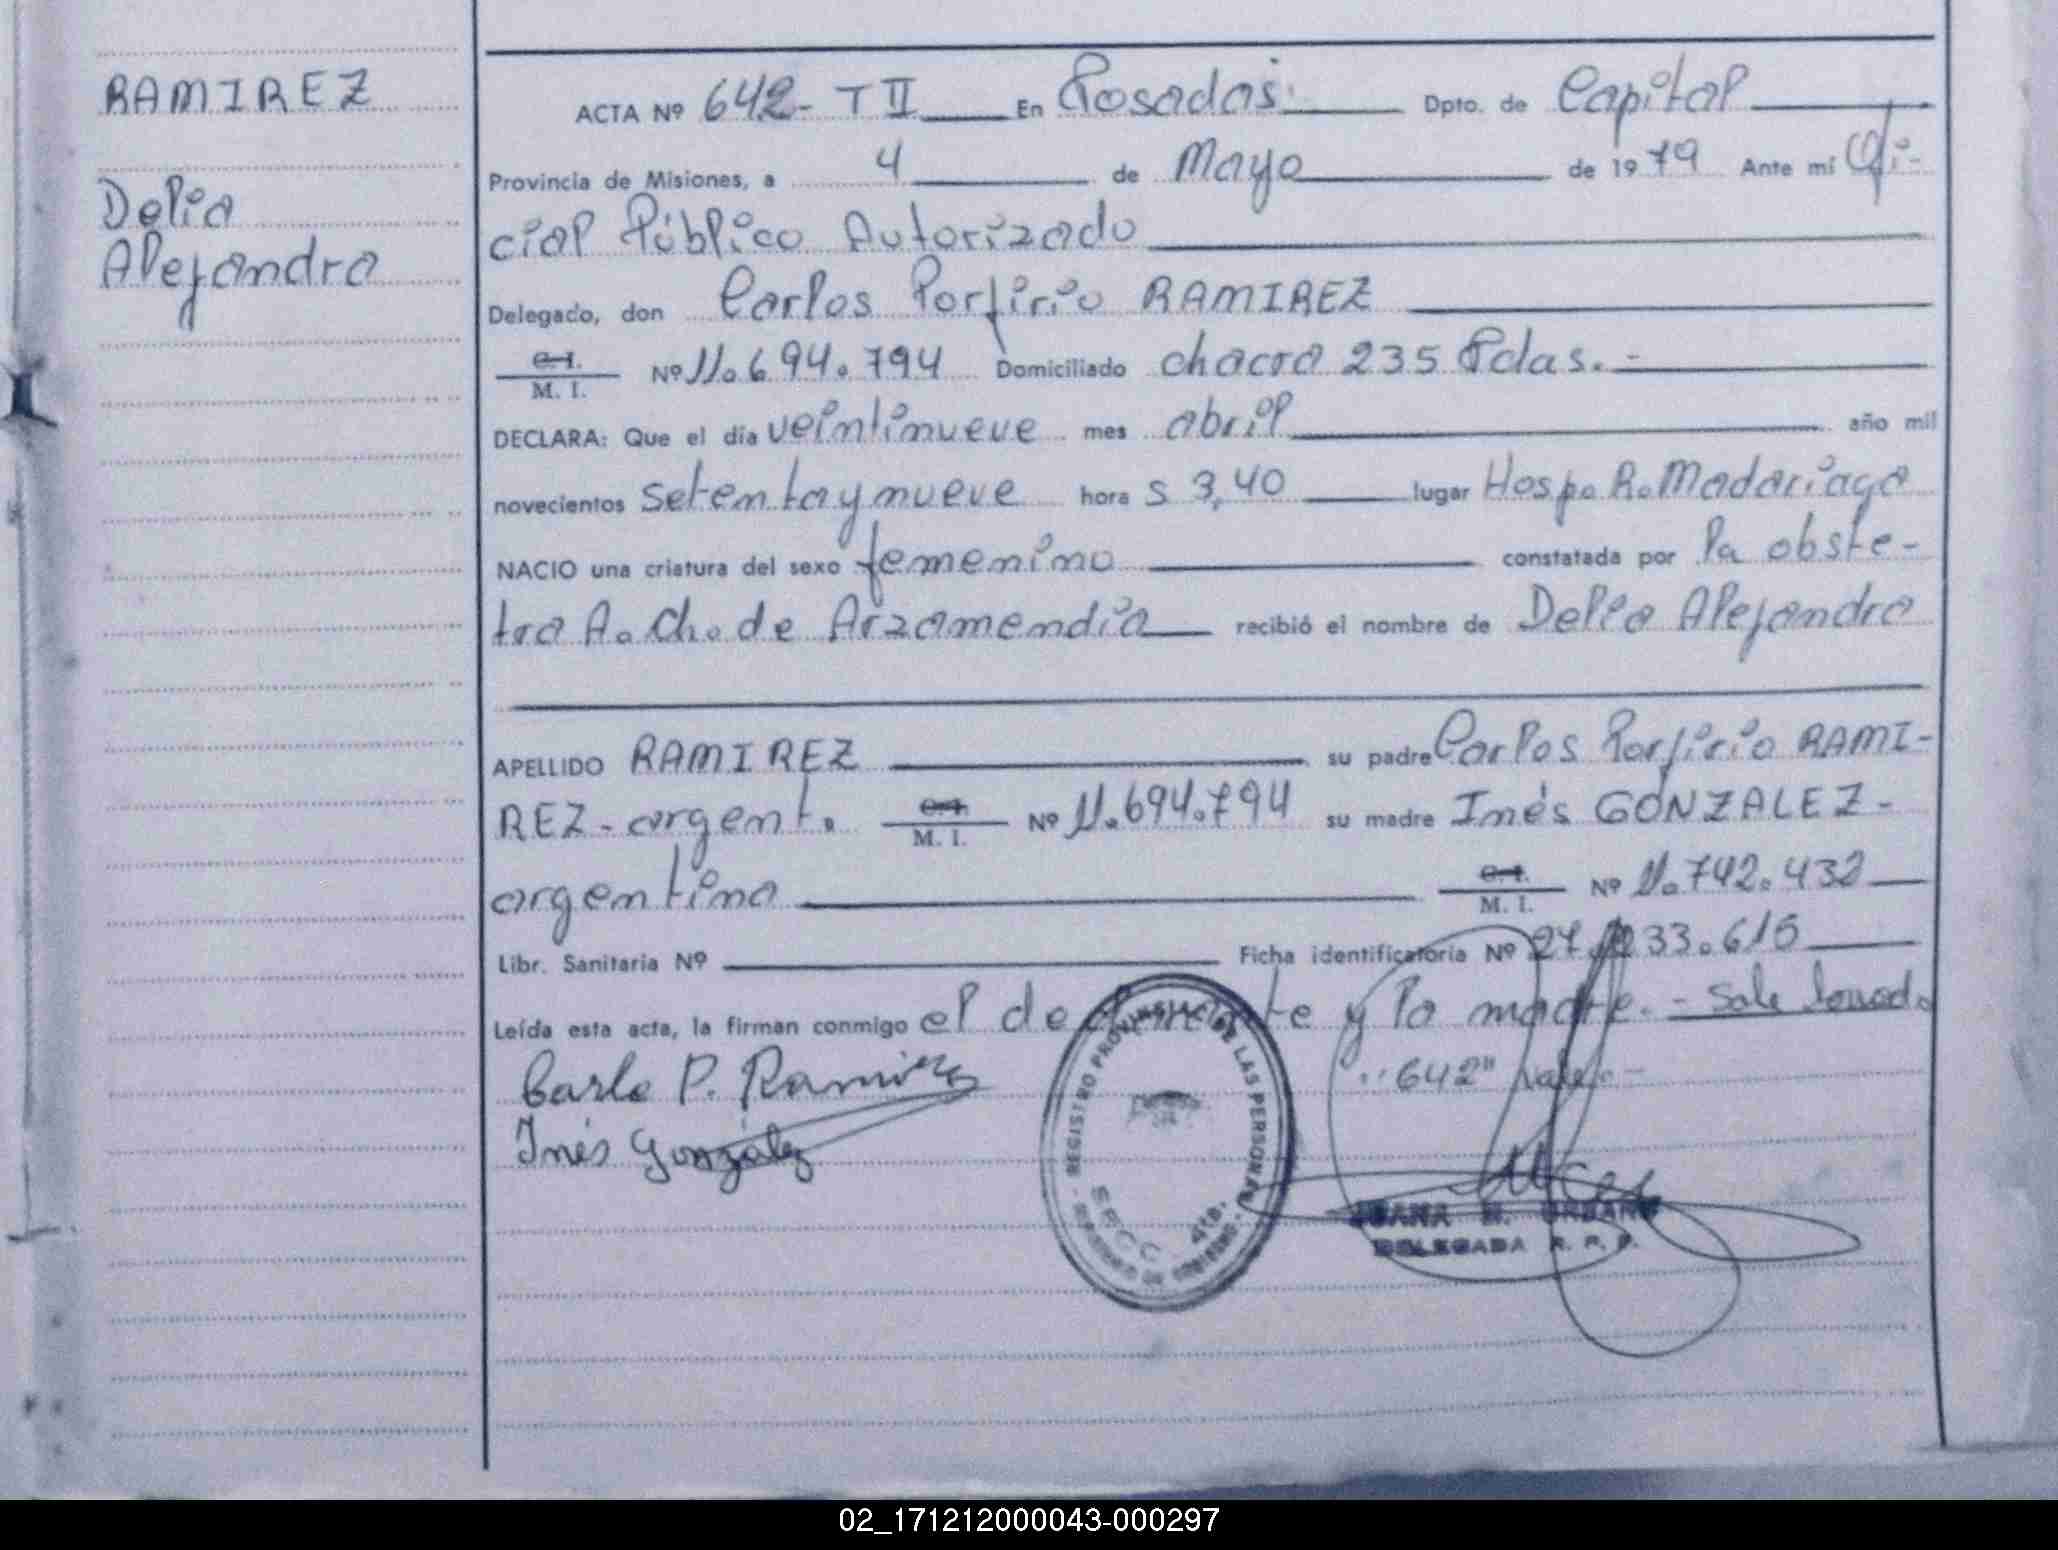 RAMIREZ
Delia
Alejandra
ACTA Nº 642- T II En Posadas Dpto. de Capital
Provincia de Misiones, a 4 de Mayo de 1979 Ante mí Ofi-
cial Público Autorizado
Delegado, don Carlos Porfirio RAMIREZ
C. I.
M. I. Nº 11.694.794 Domiciliado chacra 235 Pdas.-
DECLARA: Que el día veintinueve mes abril año mil
novecientos setenta y nueve hora s 3,40 lugar Hosp. R. Madariaga
NACIO una criatura del sexo femenino constatada por la obste-
tra A. Ch. de Arzamendia recibió el nombre de Delia Alejandra
APELLIDO RAMIREZ su padre Carlos Porfirio RAMI-
REZ - argent. C. I. M. I. Nº 11.694.794 su madre Inés GONZALEZ -
argentina C. I. M. I. Nº 11.742.432
Libr. Sanitaria Nº Ficha identificatoria Nº 27. 33.615
Leída esta acta, la firman conmigo el declarante y la madre. -
"642" vale.-
Carlo P. Ramirez
Inés González
REGISTRO PROVINCIAL DE LAS PERSONAS
SECC 4ta.
MINISTERIO DE GOBIERNO
JUANA URBANO
DELEGADA R. P. P.
02_171212000043-000297